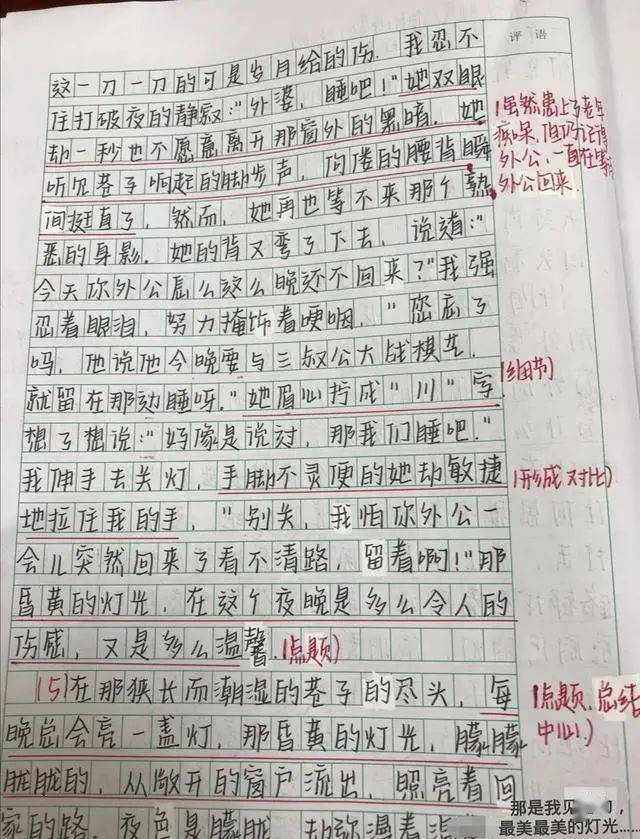 评语
这一刀一刀的可是岁月给的伤。我忍不
住打破夜的静寂:"外婆,睡吧!"她双眼
却一秒也不愿意离开那窗外的黑暗。她
听见巷子响起的脚步声,佝偻的腰背瞬
间挺直了,然而,她再也等不来那个熟
悉的身影。她的背又弯了下去,说道:"
今天你外公怎么这么晚还不回来?"我强
忍着眼泪,努力掩饰着哽咽,"您忘了
吗,他说他今晚要与三叔公大战棋艺,
就留在那边睡呀。"她眉心拧成"川"字
想了想说:"好像是说过,那我们睡吧。"
我伸手去关灯,手脚不灵便的她却敏捷
地拉住我的手,"别关,我怕你外公一
会儿突然回来了看不清路,留着啊!"那
昏黄的灯光,在这个夜晚是多么令人的
伤感,又是多么温馨。
(点题)
(5)在那狭长而潮湿的巷子的尽头,每
晚总会亮一盏灯,那昏黄的灯光,朦朦
胧胧的,从敞开的窗户流出,照亮着回
家的路。夜色是朦胧,却弥漫着
(虽然患上了老年
痴呆,但仍记得
外公,一直在等
外公回来
(细节)
(形成对比)
(点题、总结
中心)
那是我见
最美最美的灯光……